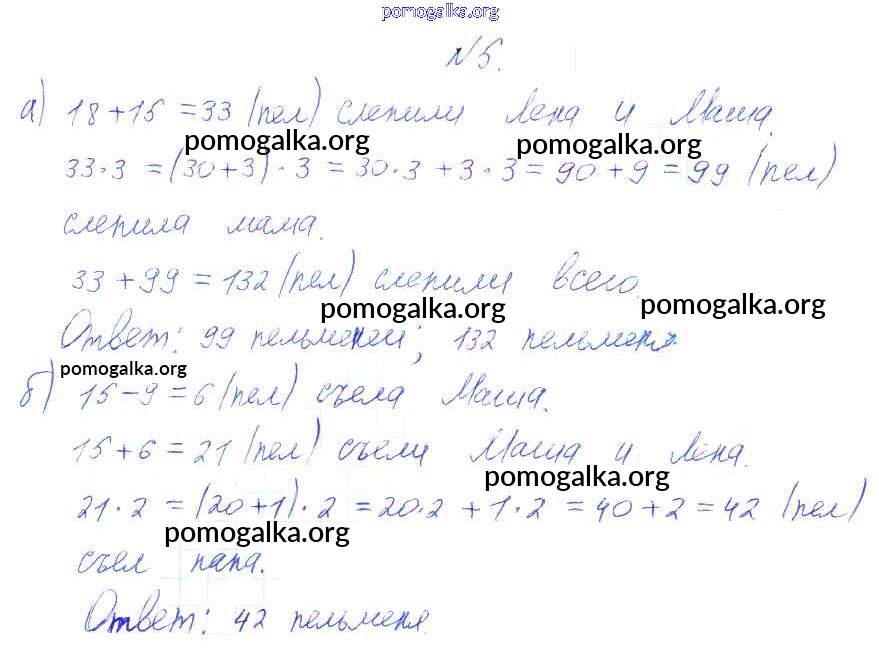 pomogalka.org
№5.
а) 18+15=33 (пел) слепили Лена и Маша.
pomogalka.org pomogalka.org
33·3 = (30+3)·3 = 30·3 + 3·3 = 90+9 = 99 (пел)
слепила мама.
33+99=132 (пел) слепили всего.
pomogalka.org pomogalka.org
Ответ: 99 пельменей; 132 пельменя.
pomogalka.org
б) 15-9=6 (пел) съела Маша.
15+6=21 (пел) съели Маша и Лена.
pomogalka.org
21·2 = (20+1)·2 = 20·2 + 1·2 = 40+2 = 42 (пел)
pomogalka.org
съел папа.
Ответ: 42 пельменя.